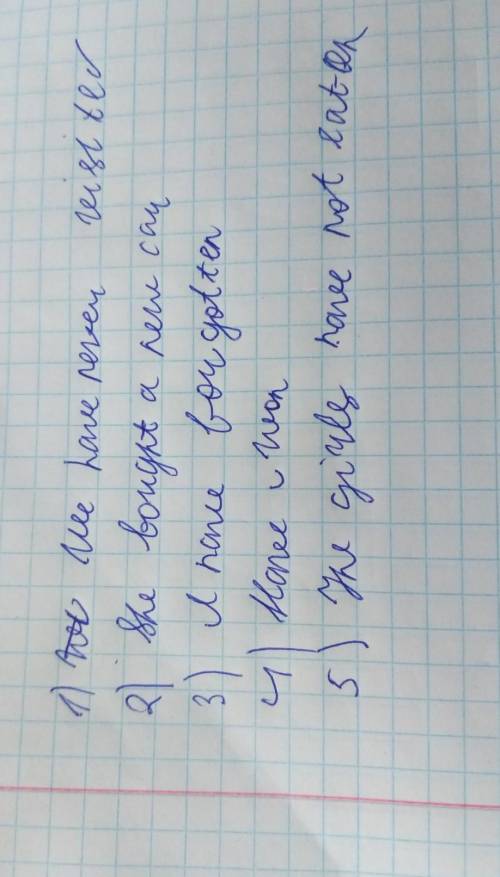 1) We have never visited
2) She bought a new car
3) I have forgotten
4) Have won
5) The girls have not eaten